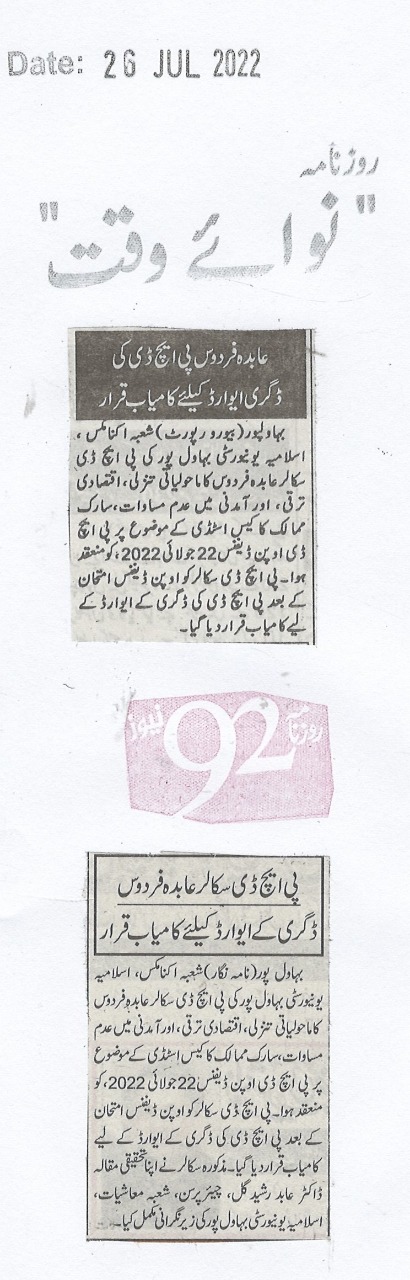 Date: 26 JUL 2022
روزنامہ
"نوائے وقت"
عابدہ فردوس پی ایچ ڈی کی
ڈگری ایوارڈ کیلئے کامیاب قرار
بہاولپور(بیورو رپورٹ)شعبہ اکنامکس،
اسلامیہ یونیورسٹی بہاول پور کی پی ایچ ڈی
سکالر عابدہ فردوس کا ماحولیاتی تنزلی، اقتصادی
ترقی، اور آمدنی میں عدم مساوات، سارک
ممالک کا کیس اسٹڈی کے موضوع پر پی ایچ
ڈی اوپن ڈیفنس 22 جولائی 2022، کو منعقد
ہوا۔ پی ایچ ڈی سکالر کو اوپن ڈیفنس امتحان
کے بعد پی ایچ ڈی کی ڈگری کے ایوارڈ کے
لیے کامیاب قرار دیا گیا۔
روزنامہ 92 نیوز
پی ایچ ڈی سکالر عابدہ فردوس
ڈگری کے ایوارڈ کیلئے کامیاب قرار
بہاول پور(نامہ نگار)شعبہ اکنامکس، اسلامیہ
یونیورسٹی بہاول پور کی پی ایچ ڈی سکالر عابدہ فردوس
کا ماحولیاتی تنزلی، اقتصادی ترقی، اور آمدنی میں عدم
مساوات، سارک ممالک کا کیس اسٹڈی کے موضوع
پر پی ایچ ڈی اوپن ڈیفنس 22 جولائی 2022، کو
منعقد ہوا۔ پی ایچ ڈی سکالر کو اوپن ڈیفنس امتحان
کے بعد پی ایچ ڈی کی ڈگری کے ایوارڈ کے لیے
کامیاب قرار دیا گیا۔ مذکورہ سکالر نے اپنا تحقیقی مقالہ
ڈاکٹر عابد رشید گل، چیئرپرسن، شعبہ معاشیات،
اسلامیہ یونیورسٹی بہاول پور کی زیر نگرانی مکمل کیا۔